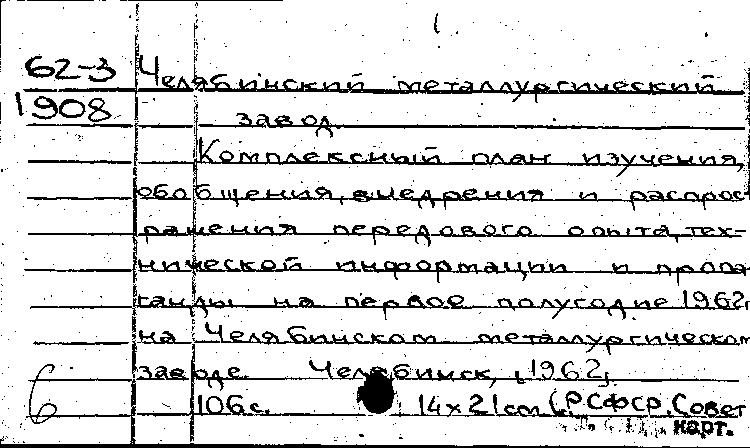 62-3 Челябинский металлургический
1908 завод.
Комплексный план изучения,
обобщения, внедрения и распрос
транения передового опыта, тех-
нической информации и пропа
ганды на первое полугодие 1962г
на Челябинском металлургическом
заводе. Челябинск, [1962].
106 с. 14х21 см (РСФСР. Совет
6 карт.